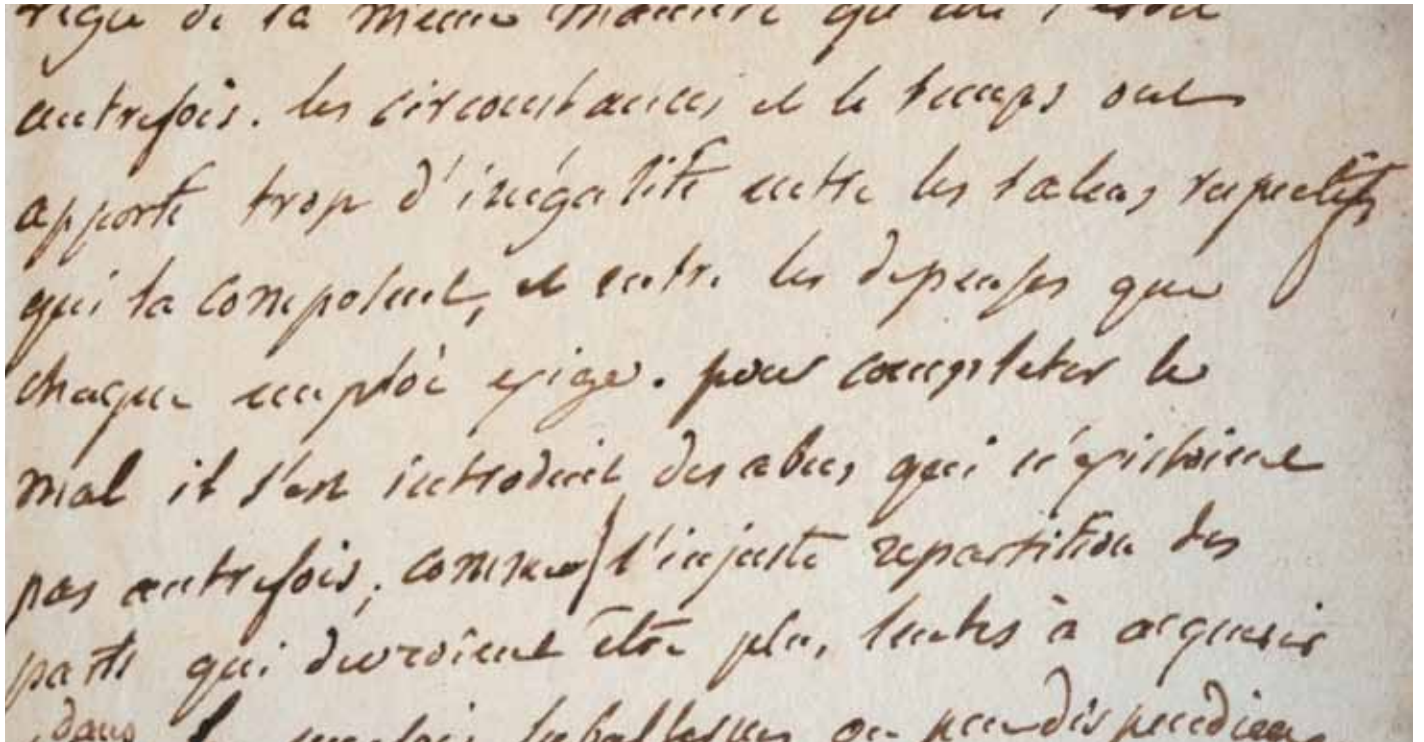 régie de la meme maniere qu'elle l'etoit
autrefois. les circonstances et le temps ont
apporté trop d'inégalité entre les talens respectifs
qui la composent, et entre les depenses que
chaque emploi exige. pour completer le
mal il s'est introduit des abus qui n'existoient
pas autrefois, comme l'injuste repartition des
parts qui devroient être plus lentes à acquerir
dans les emplois subalternes ou peu dispendieux